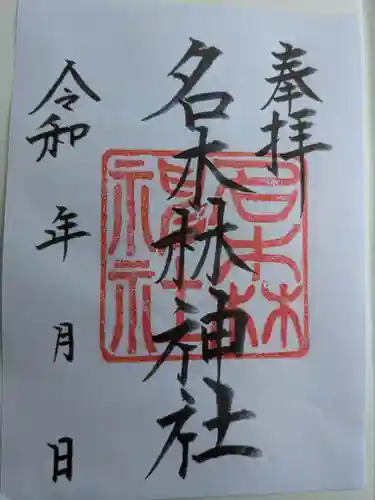 奉拝
名木林神社
令和 年 月 日
名木林
神社